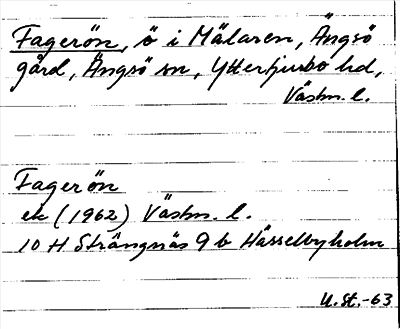 Fagerön, ö i Mälaren, Ängsö
gård, Ängsö sn, Yttertjurbo hd,
Västm. l.
Fagerön
ek (1962) Västm. l.
10 H Strängnäs 9 b Hässelbyholm
U. St. -63